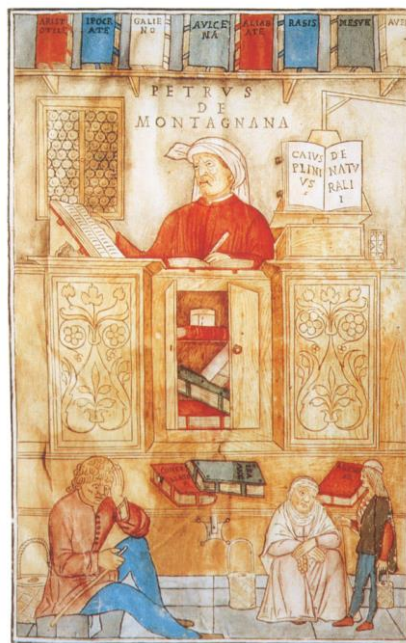 ARIST
OTILE
IPOCR
ATE
GALIE
NO
AVICE
NA
ALIAB
ATE
RASIS
MESVE
AVE
PETRVS
DE
MONTAGNANA
CAIVS
PLINI
VS
DE
NATV
RALI
I